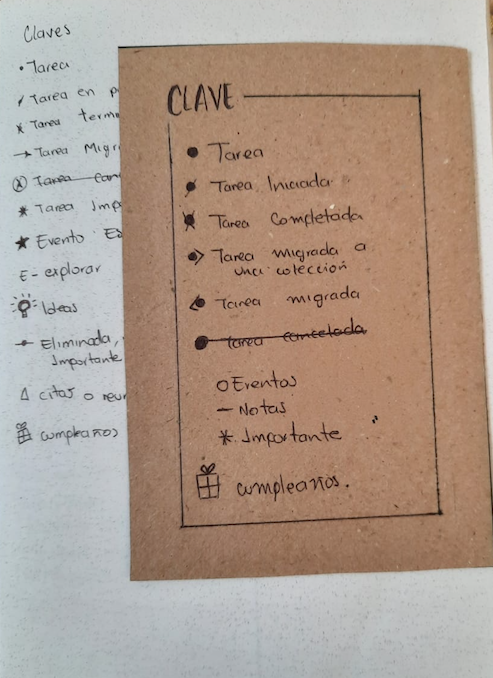 Claves
• Tarea
/ Tarea en
x Tarea
→ Tarea
ⓧ Tarea
* Tarea
★ Evento
E - explorar
Ideas
Eliminada,
Importante
Δ citas o
cumpleaños
CLAVE
• Tarea
Tarea Iniciada
Tarea Completada
Tarea migrada a
una colección
Tarea migrada
Tarea cancelada
O Eventos
— Notas
* Importante
cumpleaños.